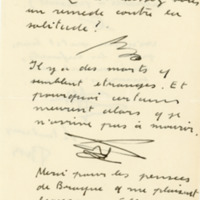 un remède contre la
solitude!
Il y a des morts qui
semblent étranges. Et
pourquoi certains
meurent alors q je
n'arrive pas à mourir.
Merci pour les pensées
de Braque q me plaisent